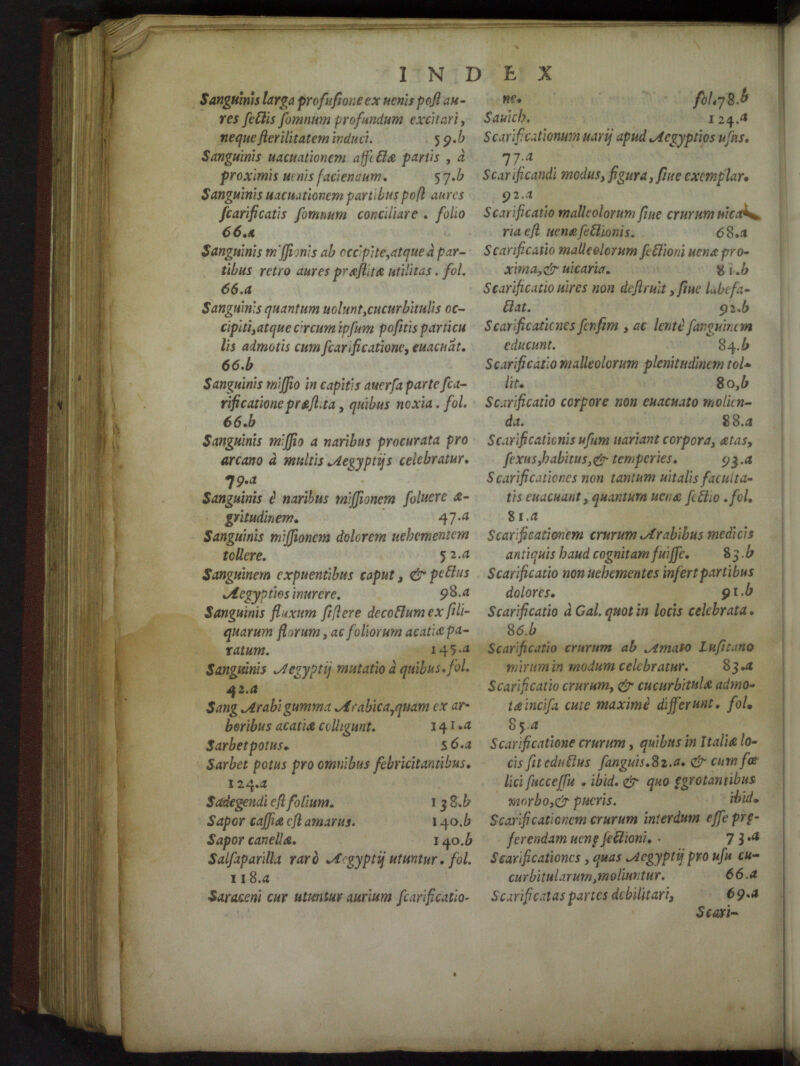 INDEX
Sanguinis larga profusione ex uenis post au-
res sectis somnum profundum excitari,
neque sterilitatem induci. 59.b
Sanguinis uacuationem affectæ partis, à
proximis uenis faciendum. 57.b
Sanguinis uacuationem partibus post aures
scarificatis somnum conciliare. folio
66.a
Sanguinis missionis ab occipite, atque à par-
tibus retro aures præstitæ utilitas. fol.
66.a
Sanguinis quantum uolunt, cucurbitulis oc-
cipiti, atque circum ipsum positis particu
lis admotis cum scarificatione, euacuāt.
66.b
Sanguinis missio in capitis auersa parte sca-
rificatione præstita, quibus noxia. fol.
66.b
Sanguinis missio a naribus procurata pro
arcano à multis Aegyptijs celebratur.
79.a
Sanguinis è naribus missionem soluere æ-
gritudinem. 47.a
Sanguinis missionem dolorem uehementem
tollere. 52.a
Sanguinem expuentibus caput, & pectus
Aegyptios inurere. 98.a
Sanguinis fluxum sistere decoctum ex sili-
quarum florum, ac foliorum acatiæ pa-
ratum. 145.a
Sanguinis Aegyptij mutatio à quibus. fol.
42.a
Sang Arabi gumma Arabica, quam ex ar-
boribus acatiæ colligunt. 141.a
Sarbet potus. 56.a
Sarbet potus pro omnibus febricitantibus.
124.a
Sadegendi est folium. 138.b
Sapor cassiæ est amarus. 140.b
Sapor canellæ. 140.b
Salsaparilla rarò Aegyptij utuntur. fol.
118.a
Saraceni cur utuntur aurium scarificatio-
ne. fol.78.b
Sauich. 124.a
Scarificationum uarij apud Aegyptios usus.
77.a
Scarificandi modus, figura, siue exemplar.
92.a
Scarificatio malleolorum siue crurum uica
ria est uenæ sectionis. 68.a
Scarificatio malleolorum sectioni uenæ pro-
xima, & uicaria. 81.b
Scarificatio uires non destruit, siue labefa-
ctat. 92.b
Scarificationes sensim, ac lentè sanguinem
educunt. 84.b
Scarificatio malleolorum plenitudinem tol-
lit. 80,b
Scarificatio corpore non euacuato molien-
da. 88.a
Scarificationis usum uariant corpora, ætas,
sexus, habitus, & temperies. 93.a
Scarificationes non tantum uitalis faculta-
tis euacuant, quantum uenæ sectio. fol.
81.a
Scarificationem crurum Arabibus medicis
antiquis haud cognitam fuisse. 83.b
Scarificatio non uehementes infert partibus
dolores. 91.b
Scarificatio à Gal. quot in locis celebrata.
86.b
Scarificatio crurum ab Amato Lusitano
mirum in modum celebratur. 83.a
Scarificatio crurum, & cucurbitulæ admo-
tæ incisa cute maximè differunt. fol.
85.a
Scarificatione crurum, quibus in Italiæ lo-
cis sit eductus sanguis. 82.a. & cum fœ
lici successu. ibid. & quo ęgrotantibus
morbo, & pueris. ibid.
Scarificationem crurum interdum esse pre-
ferendam uenę sectioni. 73.a
Scarificationes, quas Aegyptij pro usu cu-
curbitularum, moliuntur. 66.a
Scarificatas partes debilitari, 69.a
Scari-